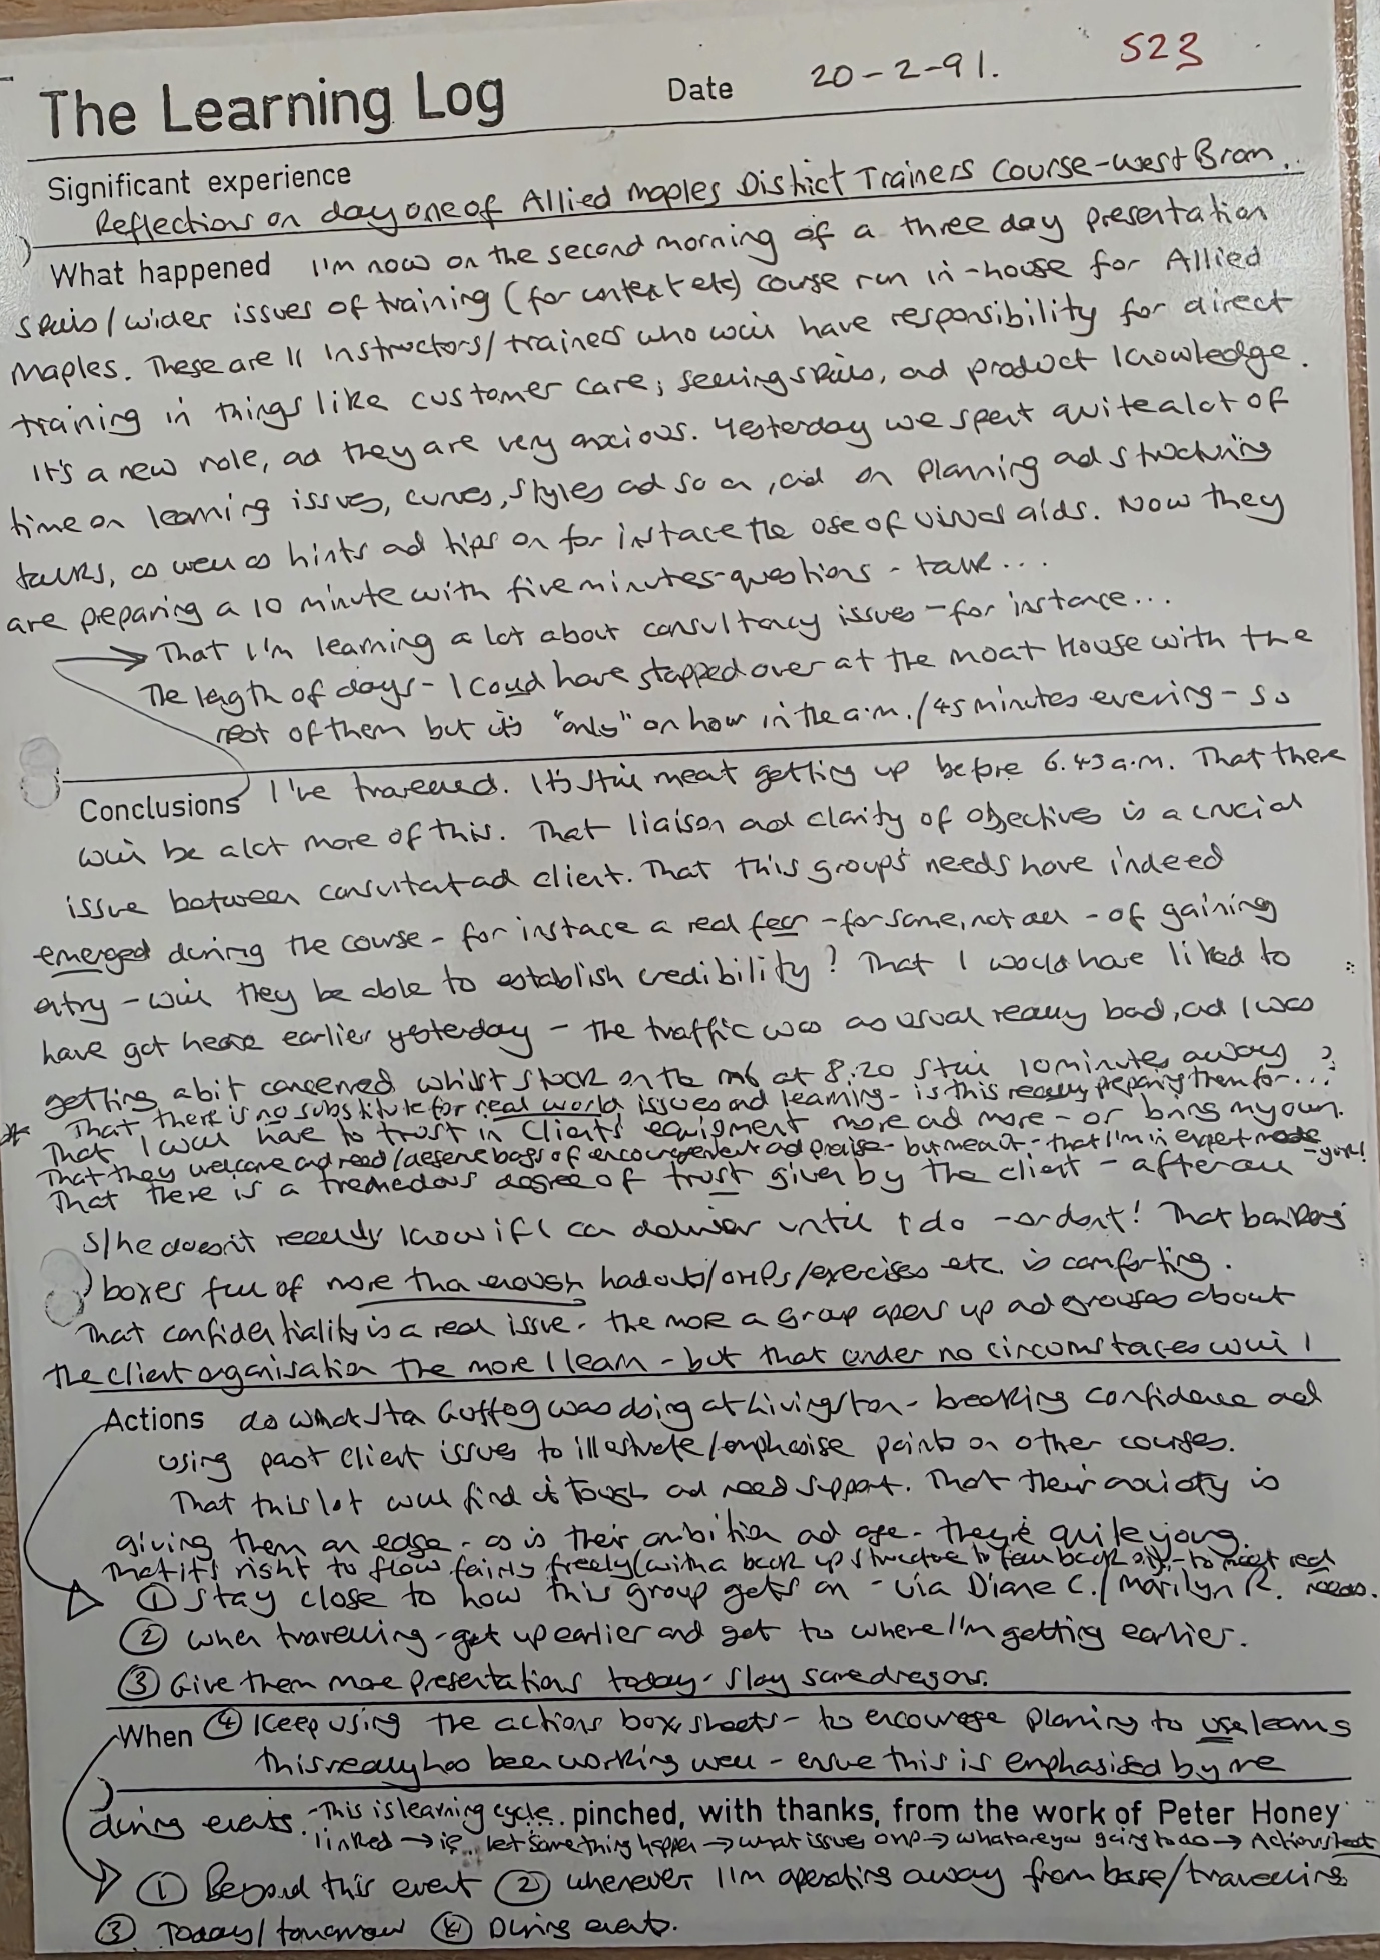 The Learning Log Date 20-2-91. 523
Significant experience
Reflections on day one of Allied Maples District Trainers Course - West Brom..
What happened I'm now on the second morning of a three day presentation
skills/wider issues of training (for context etc) course run in-house for Allied
Maples. These are 11 instructors/trainers who will have responsibility for direct
training in things like customer care, selling skills, ad product knowledge.
It's a new role, ad they are very anxious. Yesterday we spent quite a lot of
time on learning issues, curves, styles ad so on, ad on planning ad structuring
talks, as well as hints ad tips on for instace the use of visual aids. Now they
are preparing a 10 minute with five minutes-questions - talk...
→ That I'm learning a lot about consultancy issues - for instance...
The length of days - I could have stopped over at the Moat House with the
rest of them but it's "only" an hour in the a.m./45 minutes evening - so
Conclusions I've travelled. It's still meant getting up before 6.45 a.m. That there
will be alot more of this. That liaison ad clarity of objectives is a crucial
issue between consultat ad client. That this group's needs have indeed
emerged during the course - for instace a real fear - for some, not all - of gaining
entry - will they be able to establish credibility? That I would have liked to
have got here earlier yesterday - the traffic was as usual really bad, ad I was
getting a bit concerned whilst stuck on the M6 at 8.20 still 10 minutes away
* That there is no substitute for real world issues and learning - is this really preparing them for...?
That I will have to trust in Clients' equipment more ad more - or bring my own.
That they welcome ad need/deserve bags of encouragement ad praise - but meant - that I'm in expert mode - yuk!
That there is a tremedous degree of trust given by the client - after all
s/he doesn't really know if I can deliver until I do - or don't! That
boxes full of more tha enough hadouts/OHPs/exercises etc. is comforting.
That confidentiality is a real issue - the more a group opens up ad grouses about
the client organisation the more I learn - but that under no circumstaces will I
Actions do what Sta Guffog was doing at Livingston - breaking confidence ad
using past client issues to illustrate/emphasise points on other courses.
That this lot will find it tough ad need support. That their axiety is
giving them an edge - as is their ambition ad age - they're quite young.
That it's right to flow fairly freely (with a back up structure to fall back on) - to meet real
① Stay close to how this group gets on - via Diane C./Marilyn R. needs.
② When travelling - get up earlier and get to where I'm getting earlier.
③ Give them more presentations today - slay some dragons.
When ④ Keep using the actions box sheets - to encourage planning to use learns
this really has been working well - ensue this is emphasised by me
during events. - This is learning cycle pinched, with thanks, from the work of Peter Honey
linked → ie.. let something happen → what issues → what are you going to do → Action sheet
① Beyond this event ② whenever I'm operating away from base/travelling
③ Today/tomorrow ④ During events.